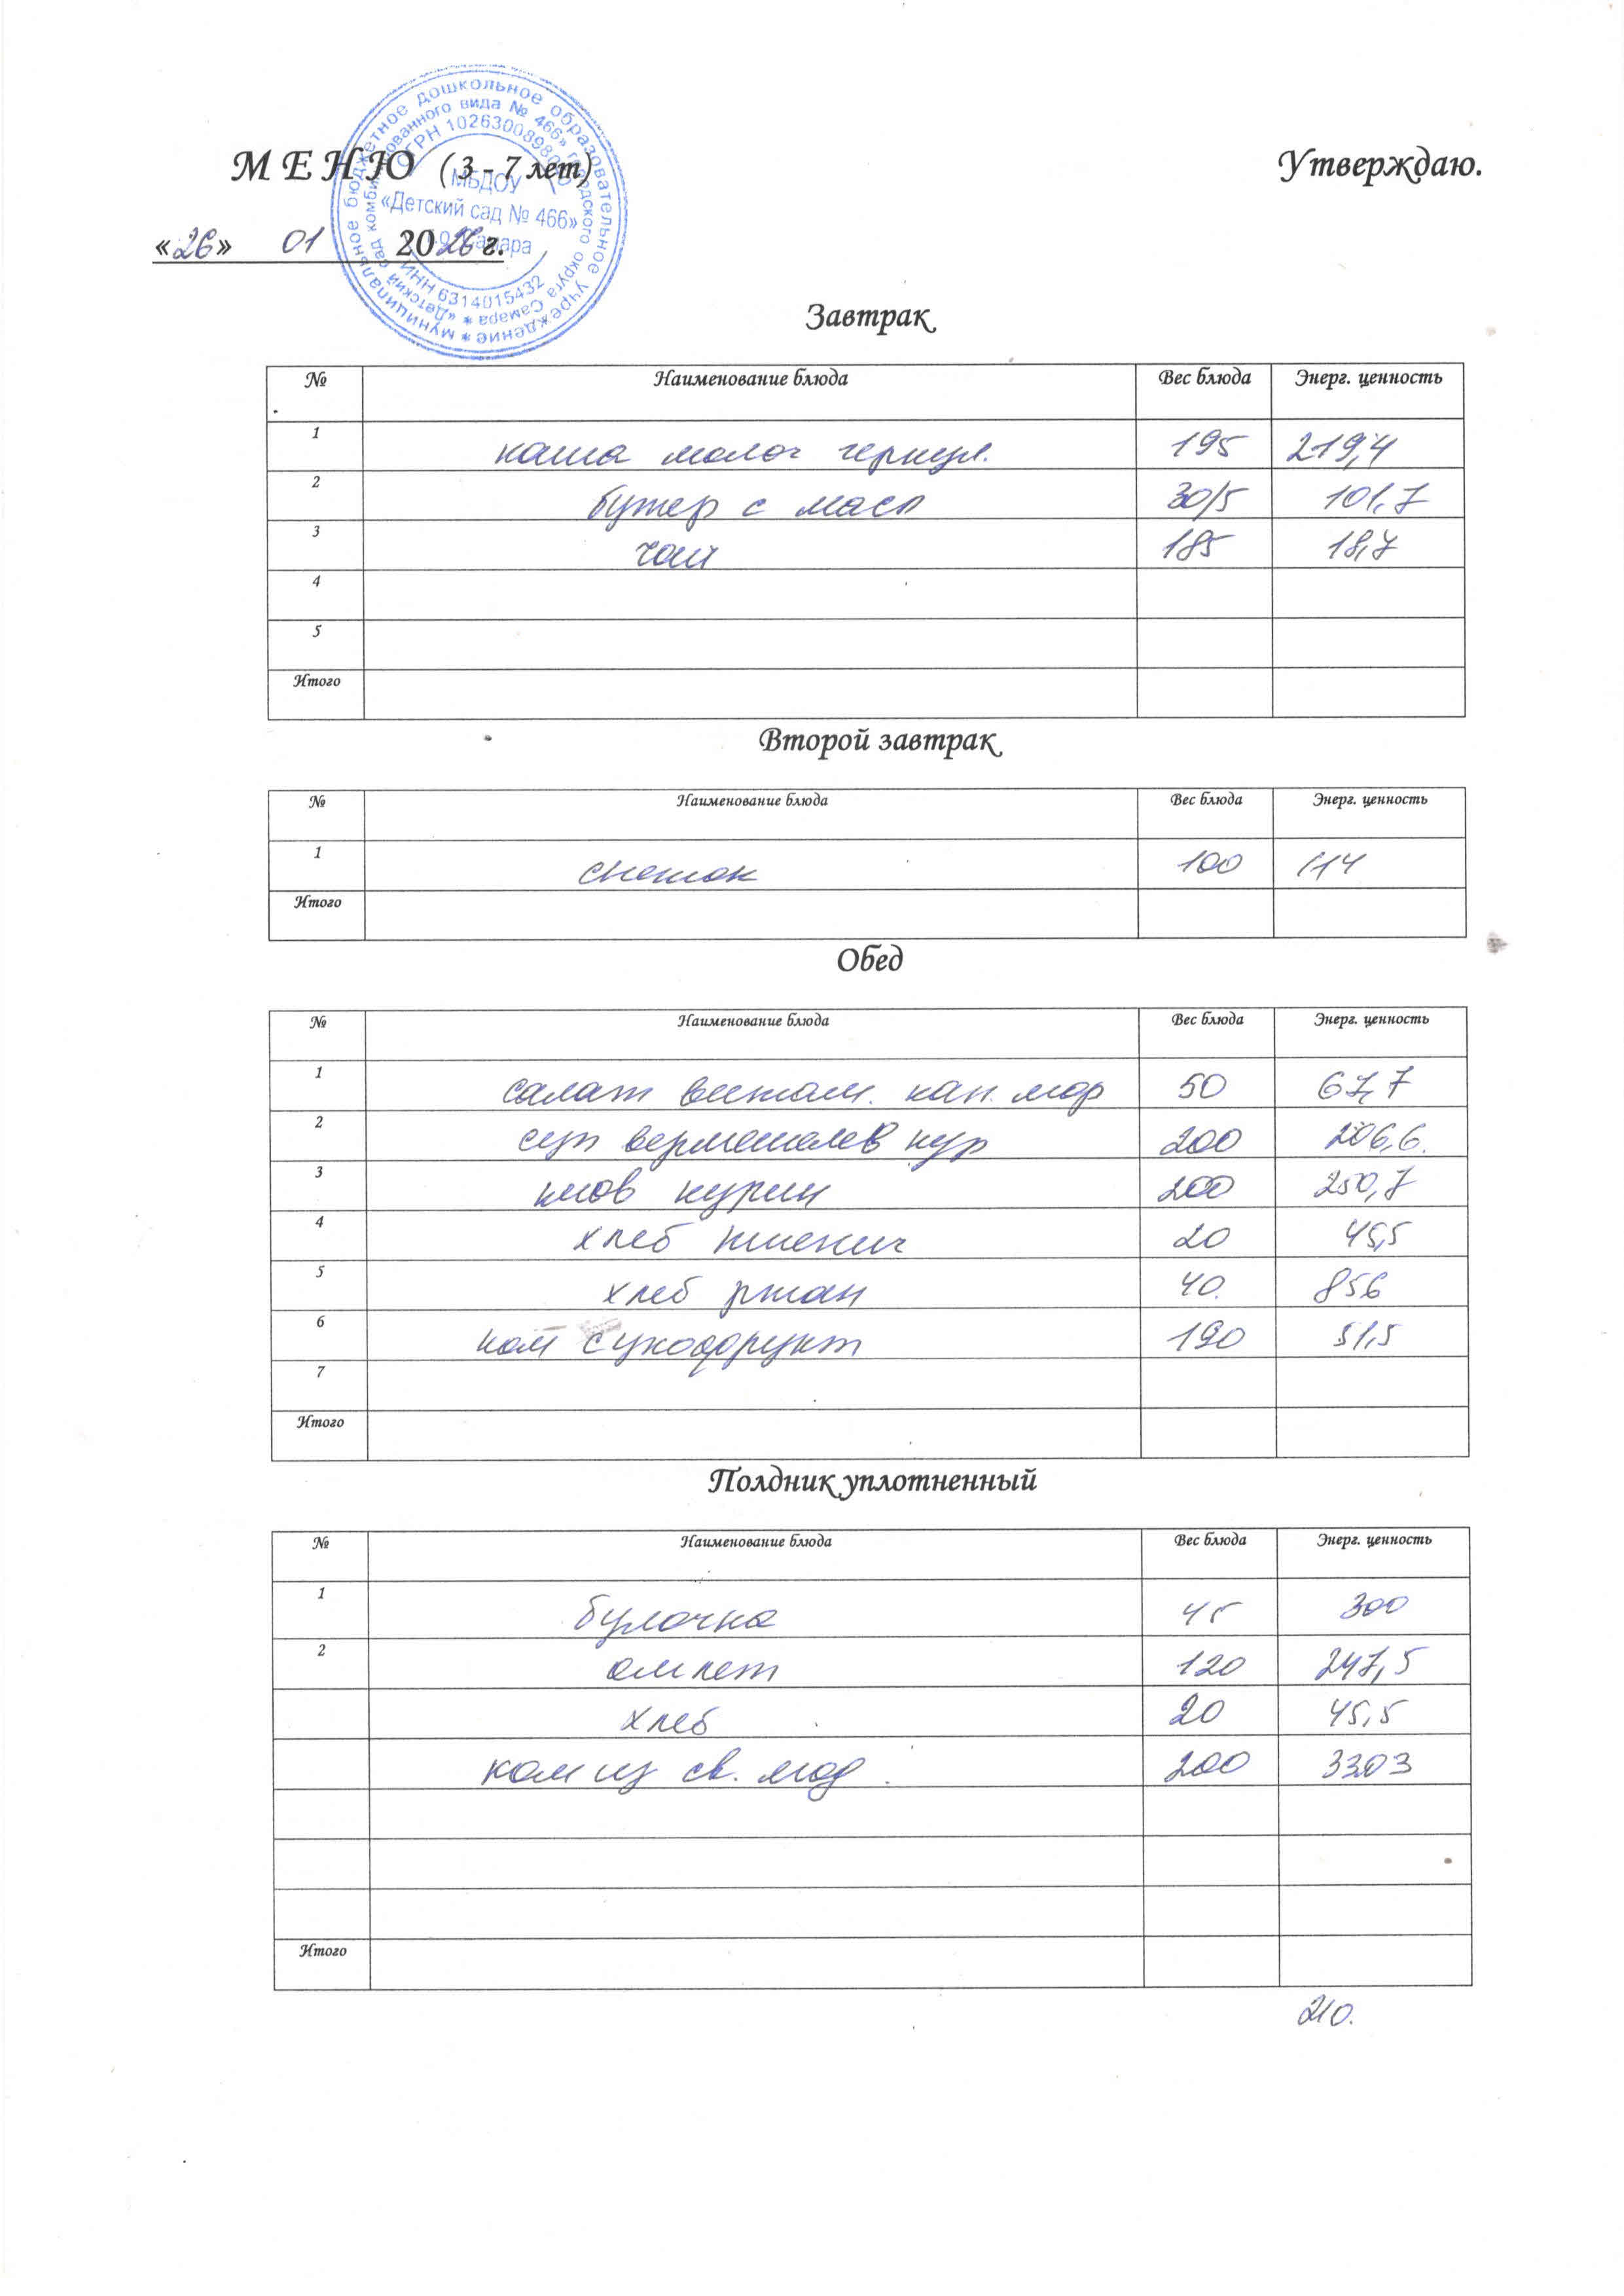 муниципальное бюджетное дошкольное образовательное учреждение
«Детский сад комбинированного вида № 466» городского округа Самара
ОГРН
МБДОУ
«Детский сад № 466»
г.о. Самара
ИНН 6314015432
МЕНЮ (3 - 7 лет) Утверждаю.
«26» 01 2026 г.
Завтрак
№ Наименование блюда Вес блюда Энерг. ценность
1 каша молоч геркул. 195 219,4
2 бутер с масл 30/5 101,7
3 чай 185 18,7
4
5
Итого
Второй завтрак
№ Наименование блюда Вес блюда Энерг. ценность
1 снежок 100 114
Итого
Обед
№ Наименование блюда Вес блюда Энерг. ценность
1 салат витам. кап. мор 50 67,7
2 суп вермешелев кур 200 206,6.
3 плов курин 200 250,7
4 хлеб пшенич 20 45,5
5 хлеб ржан 40. 856
6 ком сухофрукт 190 51,5
7
Итого
Полдник уплотненный
№ Наименование блюда Вес блюда Энерг. ценность
1 булочка 45 300
2 омлет 120 247,5
хлеб 20 45,5
ком из св. . 200 3303
Итого
210.